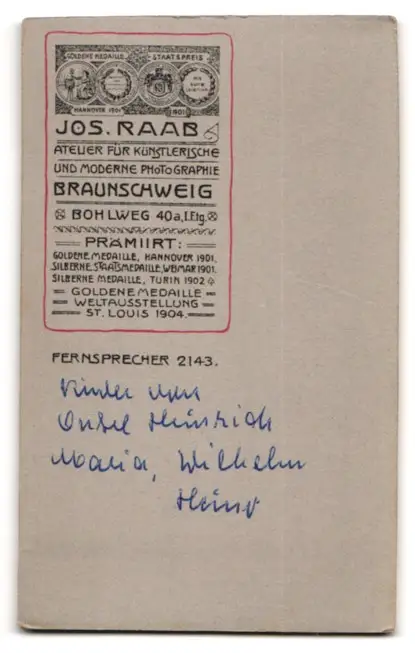 GOLDENE MEDAILLE STAATSPREIS
HANNOVER 1901 1901
JOS. RAAB
ATELIER FÜR KÜNSTLERISCHE
UND MODERNE PHOTOGRAPHIE
BRAUNSCHWEIG
BOHLWEG 40a, I.Etg.
PRÄMIIRT:
GOLDENE MEDAILLE, HANNOVER 1901.
SILBERNE STAATSMEDAILLE, WEIMAR 1901.
SILBERNE MEDAILLE, TURIN 1902
GOLDENE MEDAILLE
WELTAUSSTELLUNG
ST. LOUIS 1904.
FERNSPRECHER 2143.
Kinder von
Onkel Heinrich
Maria, Wilhelm
Heinz